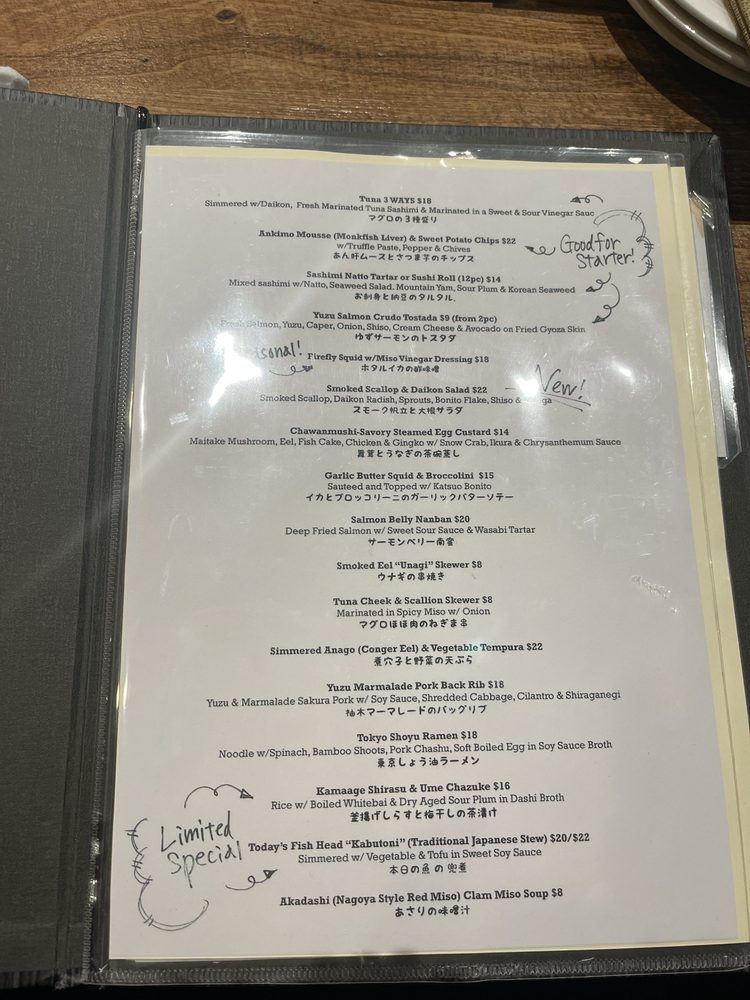 Tuna 3 WAYS $18
Simmered w/Daikon, Fresh Marinated Tuna Sashimi & Marinated in a Sweet & Sour Vinegar Sauc
マグロの3種盛り
Ankimo Mousse (Monkfish Liver) & Sweet Potato Chips $22
w/Truffle Paste, Pepper & Chives
あん肝ムースとさつま芋のチップス
Good for
Starter!
Sashimi Natto Tartar or Sushi Roll (12pc) $14
Mixed sashimi w/Natto, Seaweed Salad. Mountain Yam, Sour Plum & Korean Seaweed
お刺身と納豆のタルタル.
Yuzu Salmon Crudo Tostada $9 (from 2pc)
Fresh Salmon, Yuzu, Caper, Onion, Shiso, Cream Cheese & Avocado on Fried Gyoza Skin
ゆずサーモンのトスタダ
Firefly Squid w/Miso Vinegar Dressing $18
ホタルイカの酢味噌
Smoked Scallop & Daikon Salad $22
New!
Smoked Scallop, Daikon Radish, Sprouts, Bonito Flake, Shiso &
スモーク帆立と大根サラダ
Chawanmushi-Savory Steamed Egg Custard $14
Maitake Mushroom, Eel, Fish Cake, Chicken & Gingko w/ Snow Crab, Ikura & Chrysanthemum Sauce
舞茸とうなぎの茶碗蒸し
Garlic Butter Squid & Broccolini $15
Sauteed and Topped w/ Katsuo Bonito
イカとブロッコリーニのガーリックバターソテー
Salmon Belly Nanban $20
Deep Fried Salmon w/ Sweet Sour Sauce & Wasabi Tartar
サーモンベリー南蛮
Smoked Eel “Unagi” Skewer $8
ウナギの串焼き
Tuna Cheek & Scallion Skewer $8
Marinated in Spicy Miso w/ Onion
マグロほほ肉のねぎま串
Simmered Anago (Conger Eel) & Vegetable Tempura $22
煮穴子と野菜の天ぷら
Yuzu Marmalade Pork Back Rib $18
Yuzu & Marmalade Sakura Pork w/ Soy Sauce, Shredded Cabbage, Cilantro & Shiraganegi
柚木マーマレードのバッグリブ
Tokyo Shoyu Ramen $18
Noodle w/Spinach, Bamboo Shoots, Pork Chashu, Soft Boiled Egg in Soy Sauce Broth
東京しょう油ラーメン
Kamaage Shirasu & Ume Chazuke $16
Rice w/ Boiled Whitebai & Dry Aged Sour Plum in Dashi Broth
釜揚げしらすと梅干しの茶漬け
Limited
Special
Today's Fish Head “Kabutoni” (Traditional Japanese Stew) $20/$22
Simmered w/ Vegetable & Tofu in Sweet Soy Sauce
本日の魚の兜煮
Akadashi (Nagoya Style Red Miso) Clam Miso Soup $8
あさりの味噌汁